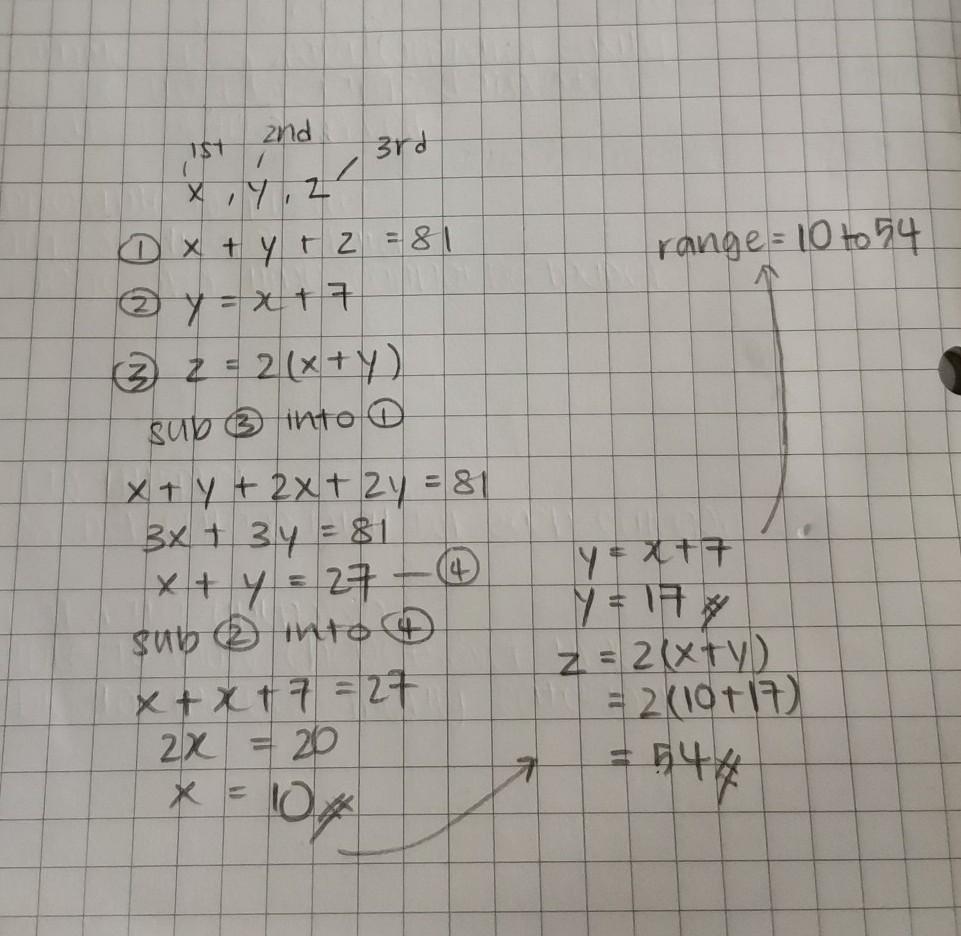 1st 2nd 3rd
x , y , z
① x + y + z = 81
② y = x + 7
③ z = 2(x + y)
sub ③ into ①
x + y + 2x + 2y = 81
3x + 3y = 81
x + y = 27 — ④
sub ② into ④
x + x + 7 = 27
2x = 20
x = 10
y = x + 7
y = 17
z = 2(x+y)
= 2(10+17)
= 54
range = 10 to 54